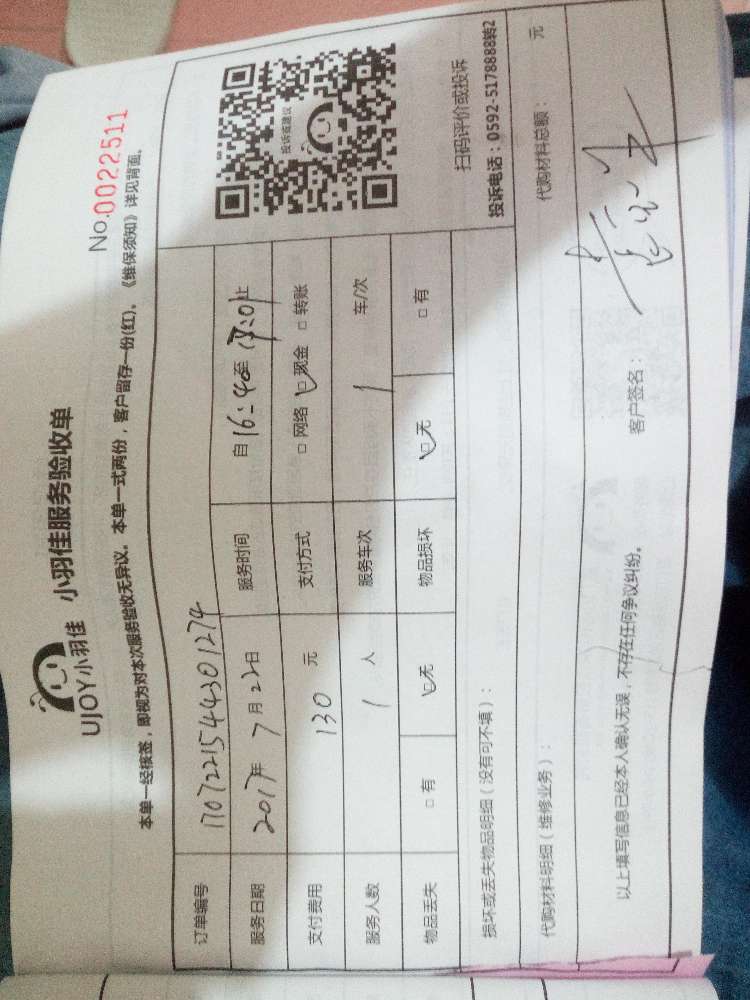 UJOY小羽佳 小羽佳服务验收单
No.0022511
本单一经核签，即视为对本次服务验收无异议。本单一式两份，客户留存一份(红)。《维保须知》详见背面。
订单编号 1707221544301274
服务日期 2017年 7月 22日 服务时间 自 16:40至 17:01止
支付费用 130 元 支付方式 □ 网络 □ 现金 □ 转账
服务人数 1 人 服务车次 1 车/次
物品丢失 □ 有 □ 无 物品损坏 □ 无 □ 有
投诉或建议
扫码评价或投诉
投诉电话：0592-5178888转2
损坏或丢失物品明细（没有可不填）：
代购材料明细（维修业务）： 代购材料总额： 元
以上填写信息已经本人确认无误，不存在任何争议纠纷。 客户签名：